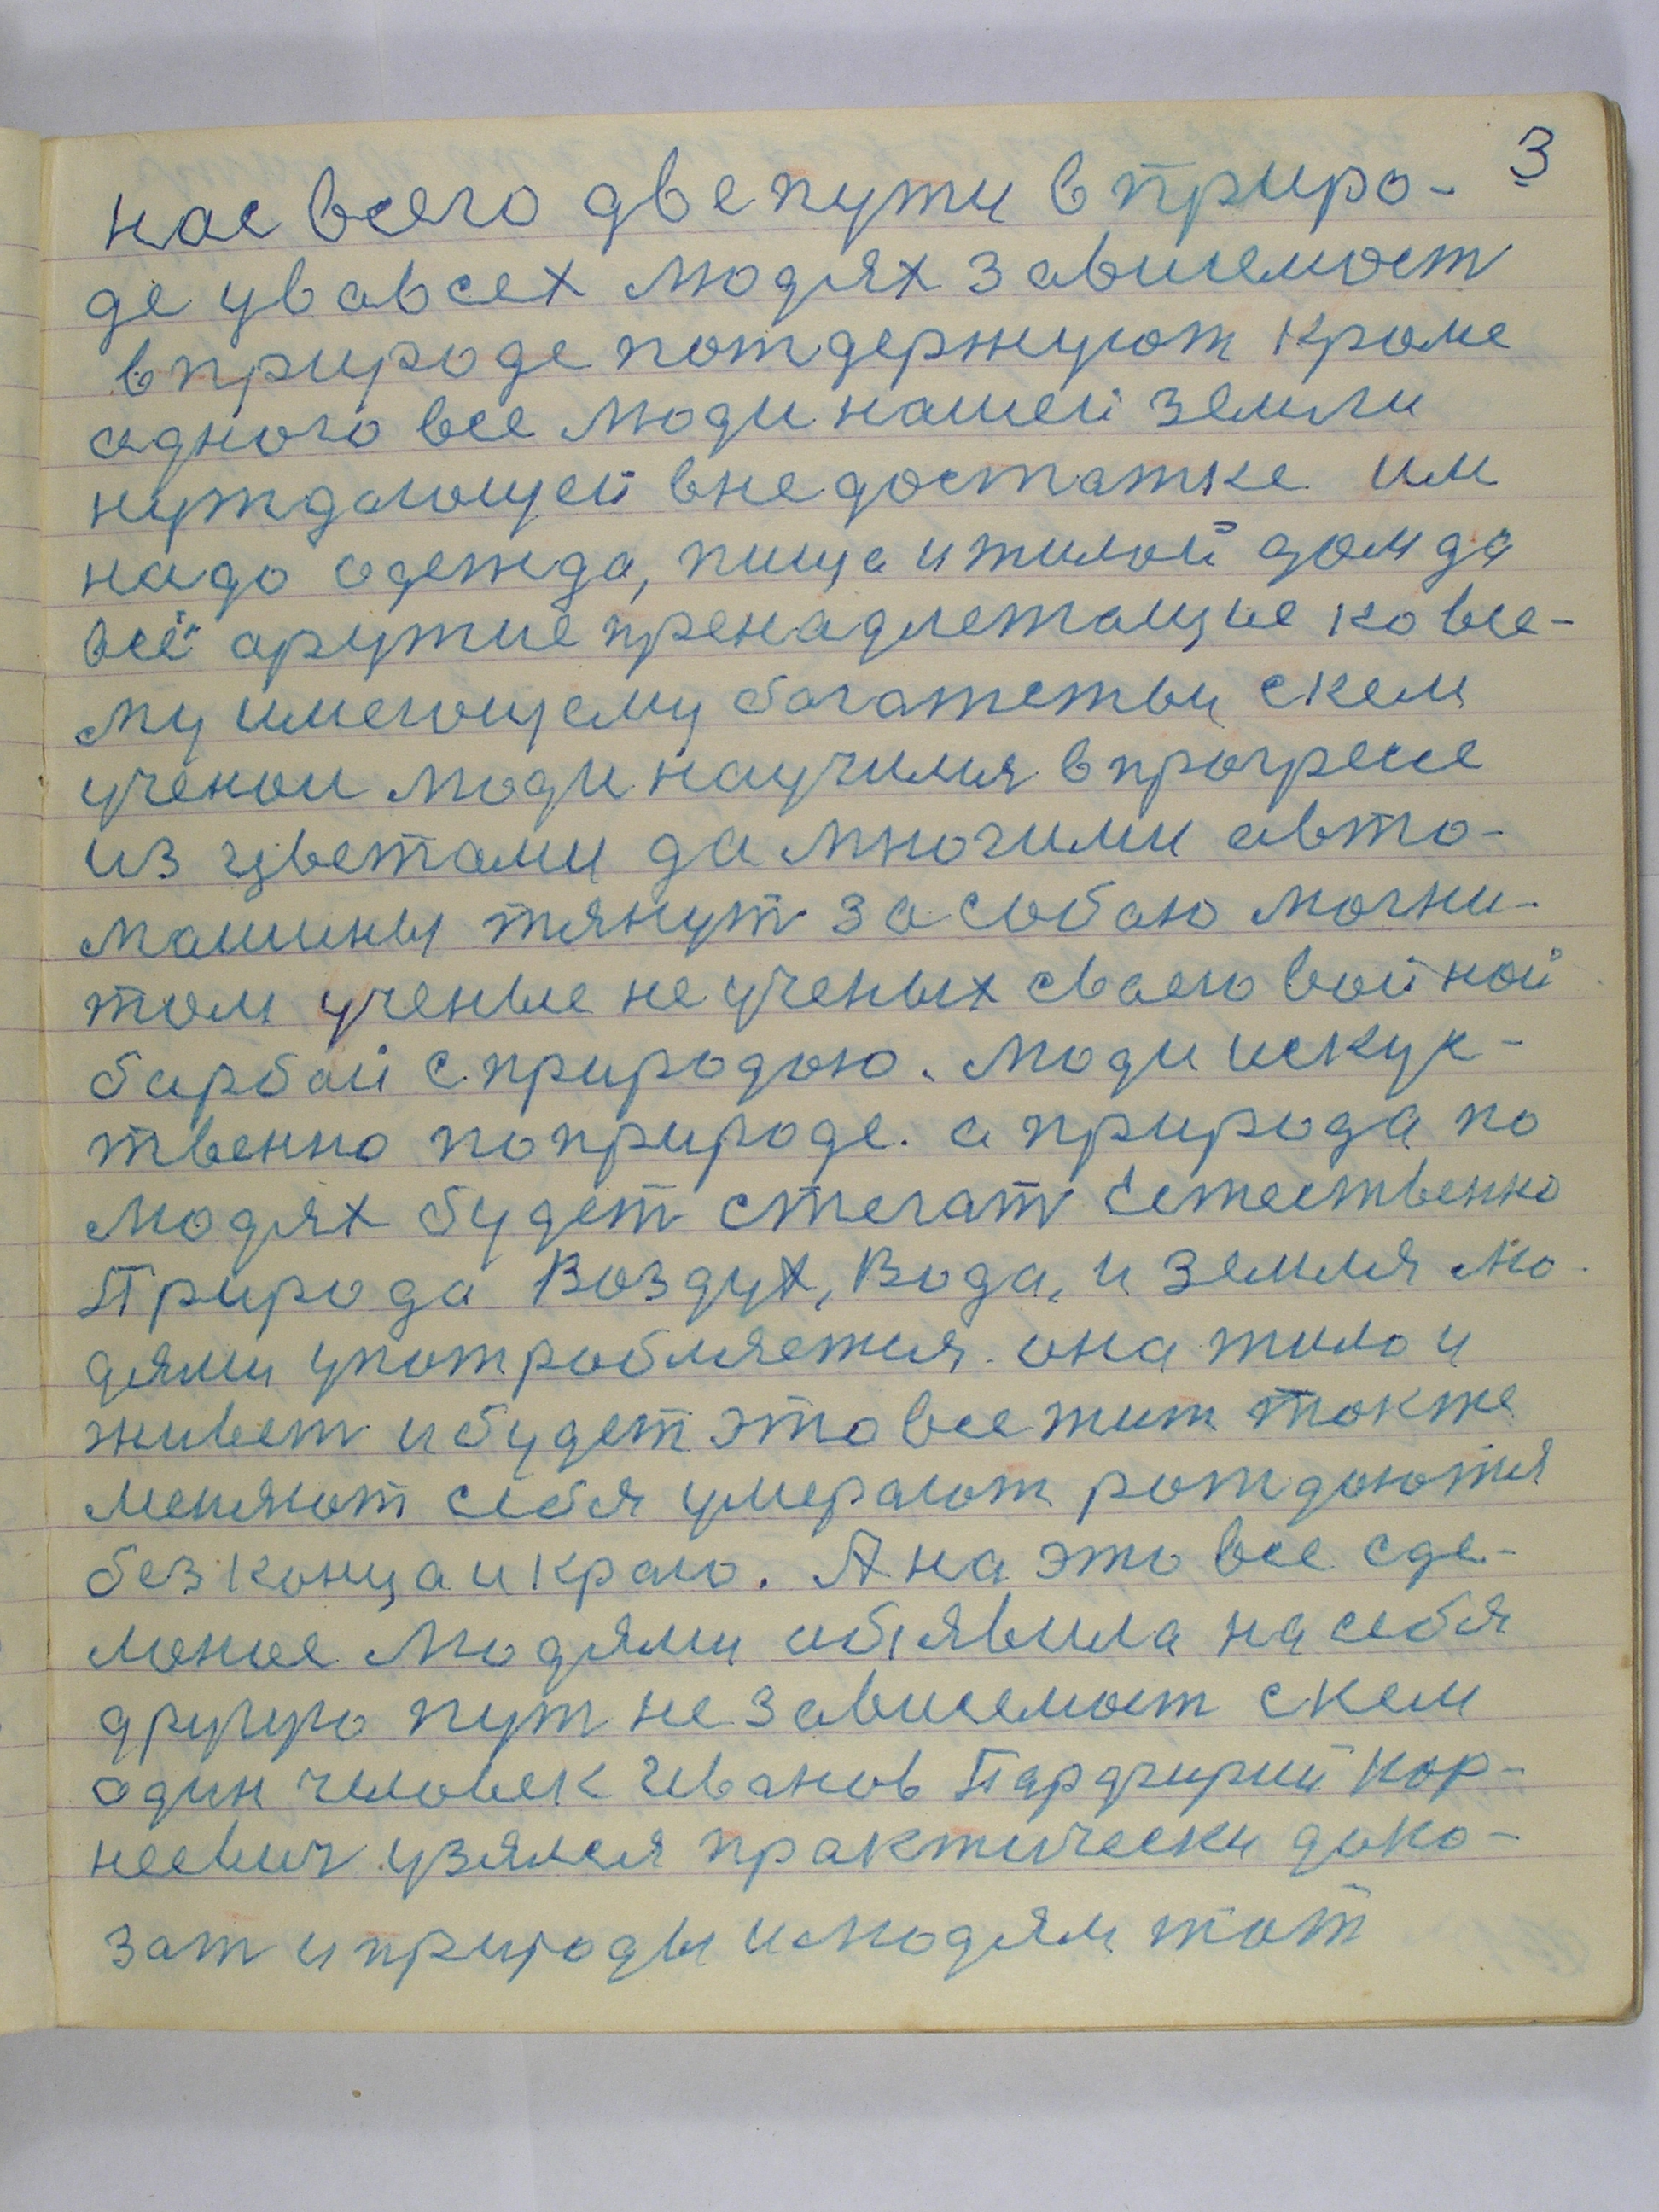 3
нас всего две пути в приро-
де ув авсех людях зависемост
в природе потдержуют кроме
одного все люди нашей земли
нуждающей в недостатке им
надо одежда, пища и жилой дом да
всё аружие пренадлежащие ко все-
му имеющему богатству с кем
ученои люди научился в прогресе
из цветами да многими авто-
машины тянут за собаю могни-
том ученые не ученых сваего войной
барбой с природою. люди искус-
твенно по природе. а природа по
людях будет стегат естественно
Природа Воздух, Вода, и земля лю-
дями употробляется. она жило и
живет и будет это все жит также
меняют себя умерают рождаются
без конца и краю. А на это все сде-
ланое людями обявила на себя
другую пут не зависемост с кем
один человек Иванов Парфирий Кор-
неевич узялся практически дока-
зат и природы и людям тот